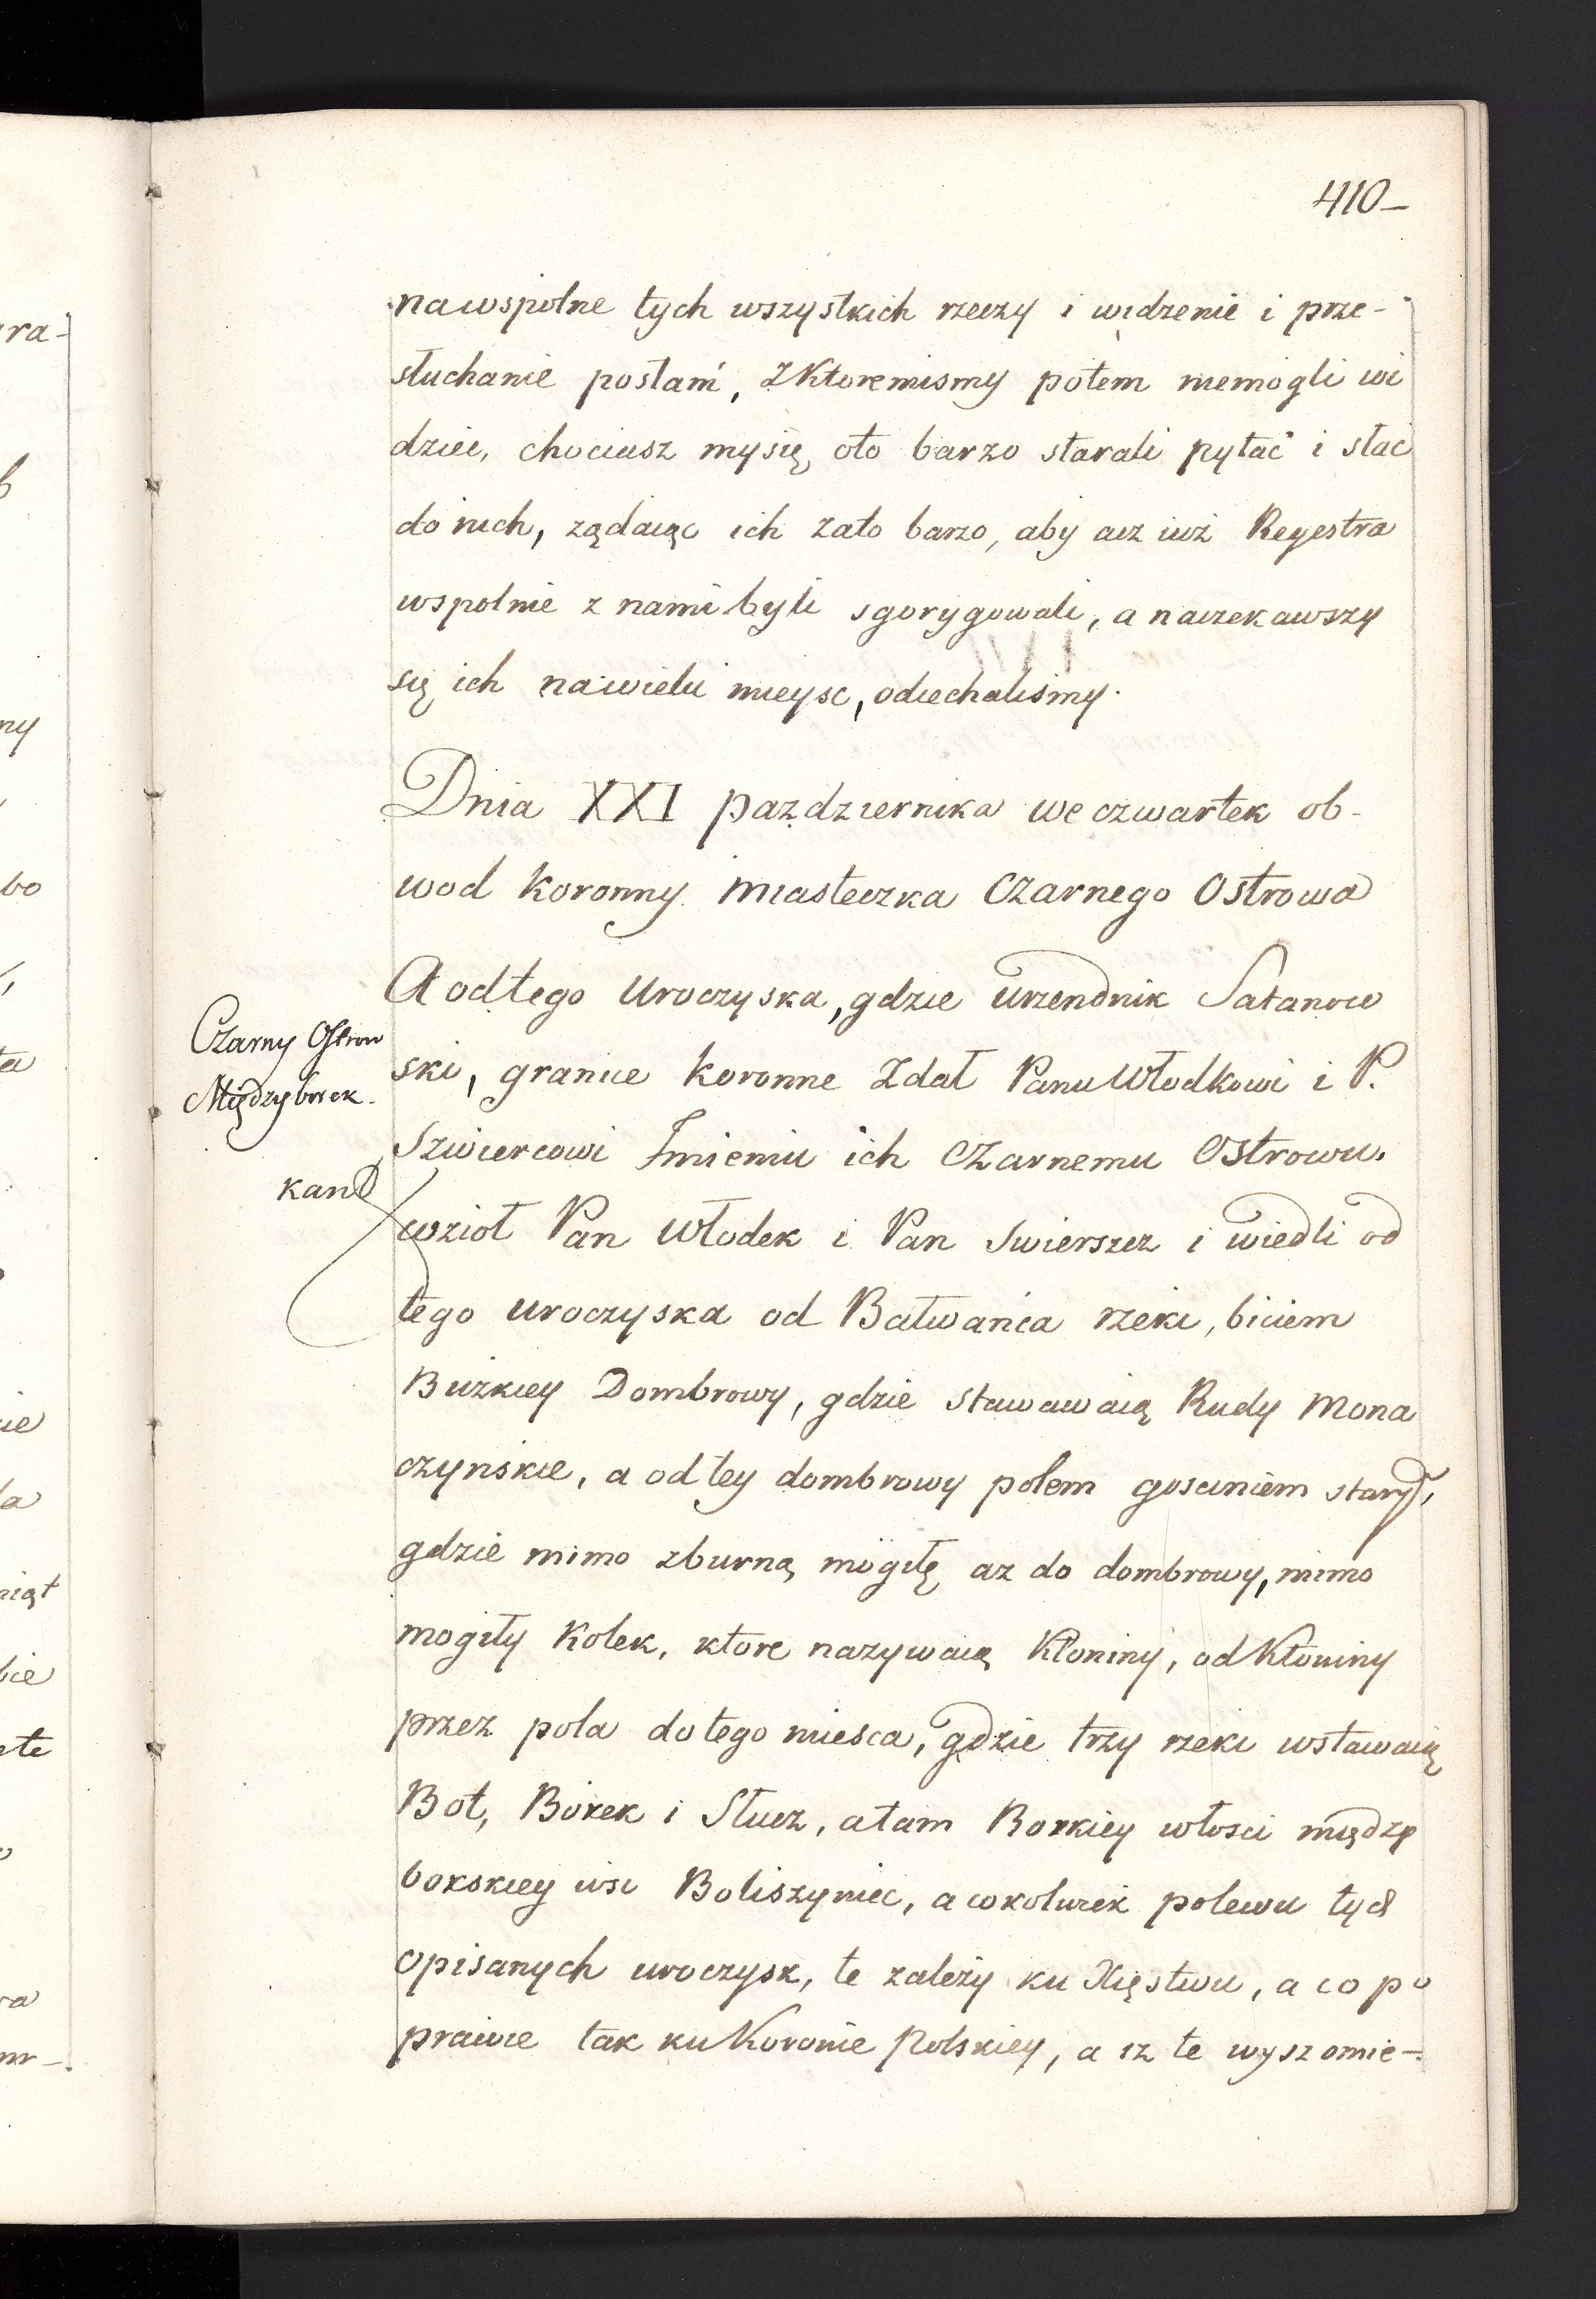 410–
nawspolne tych wszystkich rzeczy i widzenie i prze-
słuchanie posłani, z ktoremismy potem niemogli wi
dziec, chociasz mysię oto barzo starali pytać i słac
do nich, ządaiąc ich zato barzo, aby acz iuż Regestra
wspolnie z nami byli sgorygowali, a naczekawszy
się ich nawielu mieysc, odiechalismy.
Dnia XXI pazdziernika we czwartek ob-
wod koronny miasteczka Czarnego Ostrowa
A odtego Uroczyska, gdzie urzendnik Satanow
ski, granice koronne zdał Panu Włodkowi i P.
Szwiercowi Imieniu ich Czarnemu Ostrowu.
wzioł Pan Włodek i Pan Swierszcz i wiedli od
tego uroczyska od Bałwańca rzeki, biciem
Bużkiey Dombrowy, gdzie stawawaią Rudy Mona
czynskie, a od tey dombrowy polem goscincem stary,
gdzie mimo zburną mogiłę az do dombrowy, mimo
mogiły Kolek, ktore nazywaią Kłoniny, od Kłoniny
przez pola do tego miesca, gdzie trzy rzeki wstawaią
Boł, Bożek i Słucz, a tam Bożkiey włosci między
bożskiey wsi Boliszyniec, a cokolwiek polewu tych
opisanych uroczysk, te zależy ku Xięstwu, a co po
prawie tak ku Koronie Polskiey, a iz te wyszomie-
Czarny Ostrow
Międzyborek.
kand